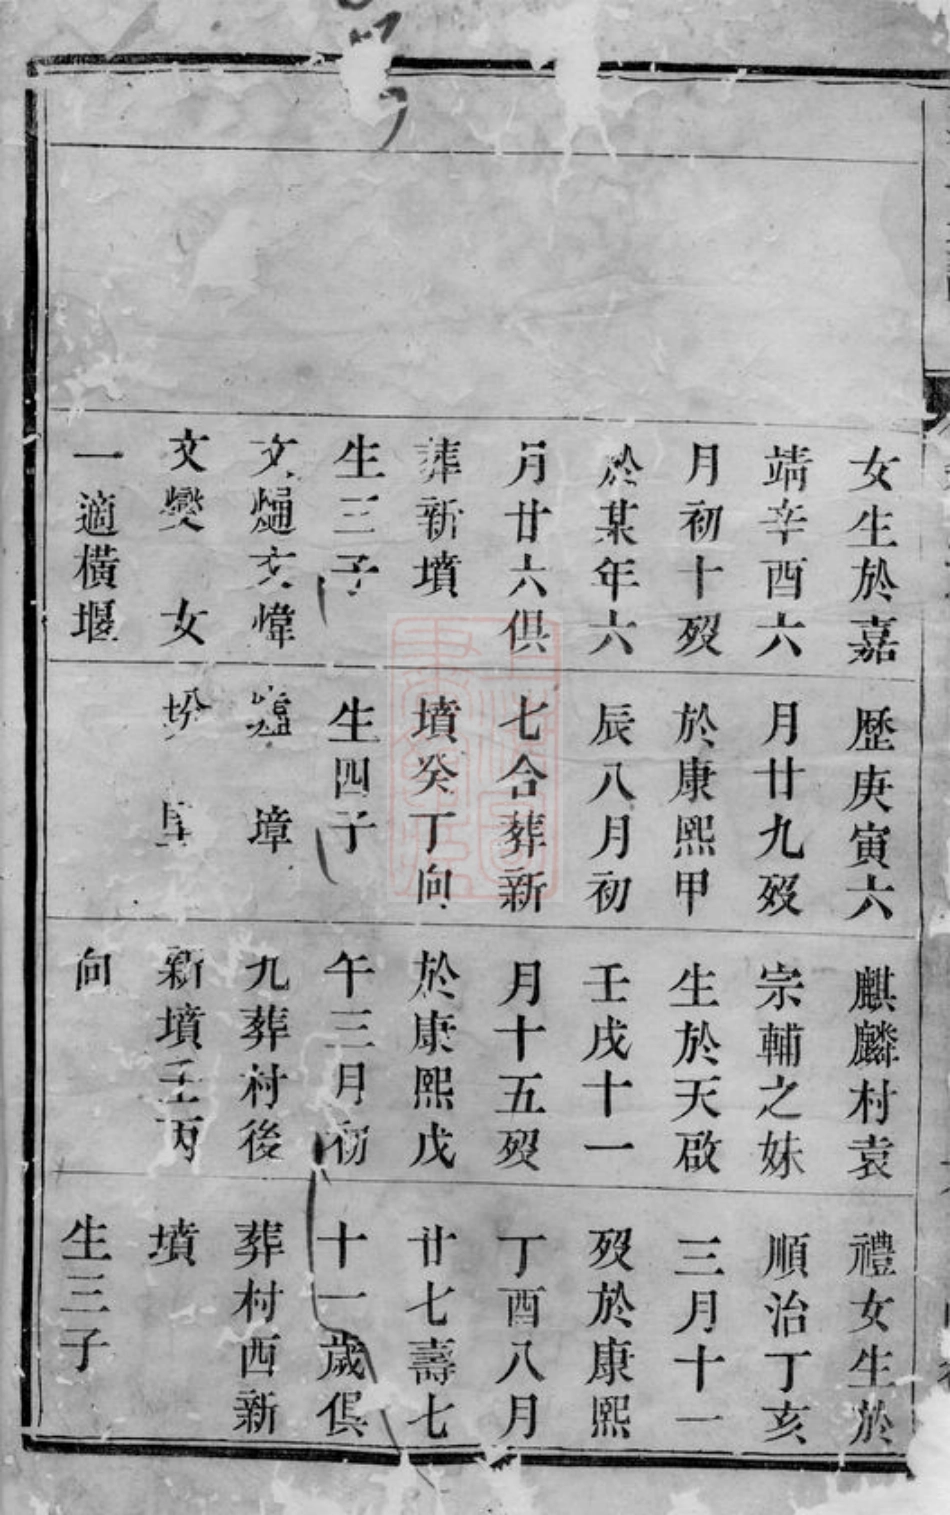 女生於嘉
靖辛酉六
月初十歿
於某年六
月廿六俱
葬新墳
生三子
文煶文煒
文燮 女
一適橫堰
歷庚寅六
月廿九歿
於康熙甲
辰八月初
七合葬新
墳癸丁向
生四子
璋
坋
麒麟村袁
宗輔之妹
生於天啟
壬戌十一
月十五歿
於康熙戊
午三月初
九葬村後
新墳壬丙
向
禮女生於
順治丁亥
三月十一
歿於康熙
丁酉八月
廿七壽七
十一歲俱
葬村西新
墳
生三子